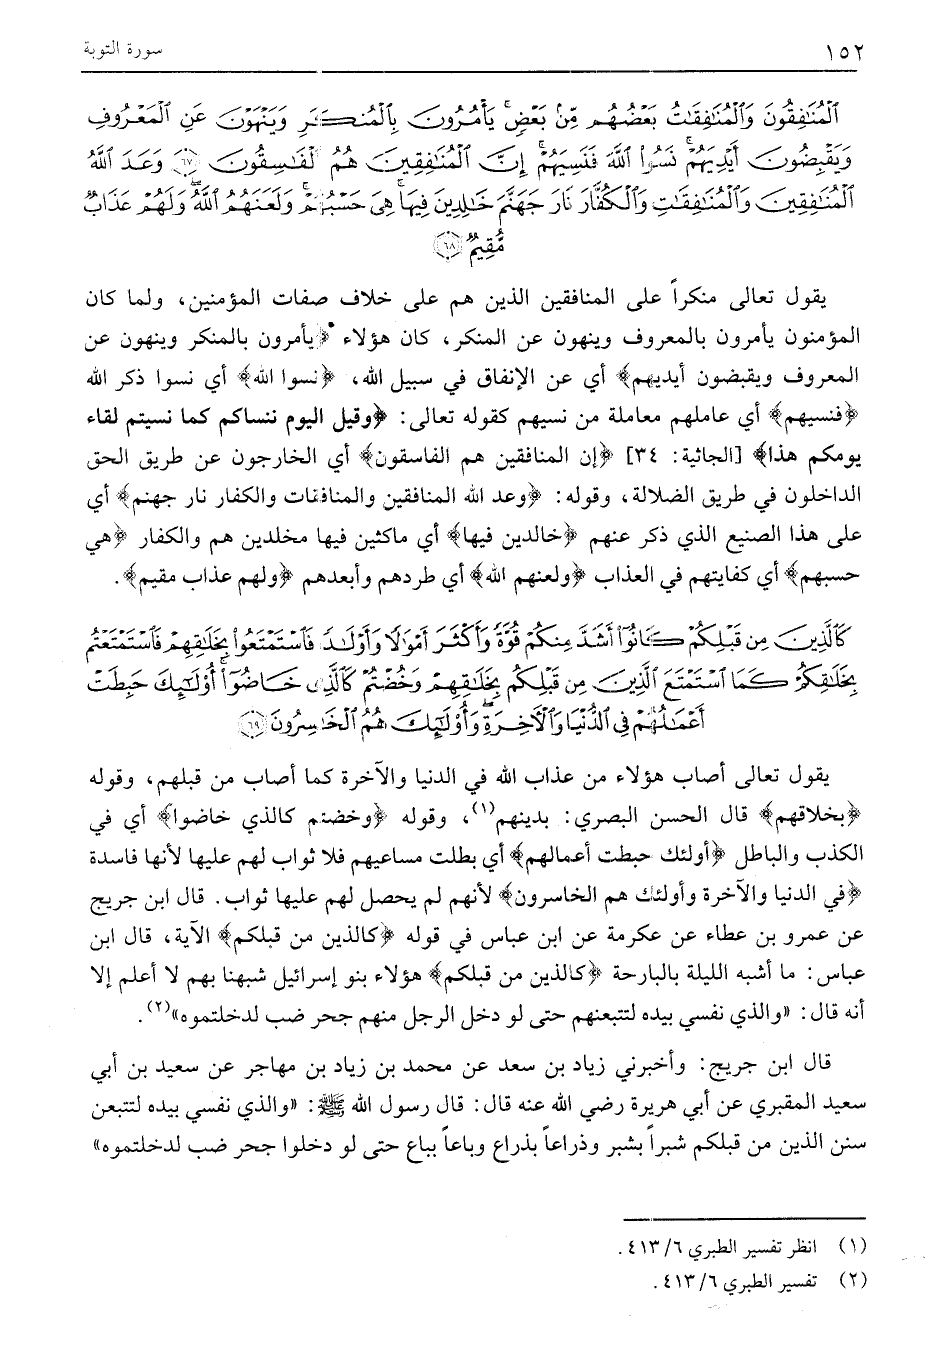 ١٥٢ سورة التوبة
ٱلْمُنَٰفِقُونَ وَٱلْمُنَٰفِقَٰتُ بَعْضُهُم مِّنۢ بَعْضٍ ۚ يَأْمُرُونَ بِٱلْمُنكَرِ وَيَنْهَوْنَ عَنِ ٱلْمَعْرُوفِ
وَيَقْبِضُونَ أَيْدِيَهُمْ ۚ نَسُوا۟ ٱللَّهَ فَنَسِيَهُمْ ۗ إِنَّ ٱلْمُنَٰفِقِينَ هُمُ ٱلْفَٰسِقُونَ ﴿٦٧﴾ وَعَدَ ٱللَّهُ
ٱلْمُنَٰفِقِينَ وَٱلْمُنَٰفِقَٰتِ وَٱلْكُفَّارَ نَارَ جَهَنَّمَ خَٰلِدِينَ فِيهَا ۚ هِىَ حَسْبُهُمْ ۚ وَلَعَنَهُمُ ٱللَّهُ ۖ وَلَهُمْ عَذَابٌ
مُّقِيمٌ ﴿٦٨﴾
يقول تعالى منكراً على المنافقين الذين هم على خلاف صفات المؤمنين، ولما كان
المؤمنون يأمرون بالمعروف وينهون عن المنكر، كان هؤلاء ﴿يأمرون بالمنكر وينهون عن
المعروف ويقبضون أيديهم﴾ أي عن الإنفاق في سبيل الله، ﴿نسوا الله﴾ أي نسوا ذكر الله
﴿فنسيهم﴾ أي عاملهم معاملة من نسيهم كقوله تعالى: ﴿وقيل اليوم ننساكم كما نسيتم لقاء
يومكم هذا﴾ [الجاثية: ٣٤] ﴿إن المنافقين هم الفاسقون﴾ أي الخارجون عن طريق الحق
الداخلون في طريق الضلالة، وقوله: ﴿وعد الله المنافقين والمنافقات والكفار نار جهنم﴾ أي
على هذا الصنيع الذي ذكر عنهم ﴿خالدين فيها﴾ أي ماكثين فيها مخلدين هم والكفار ﴿هي
حسبهم﴾ أي كفايتهم في العذاب ﴿ولعنهم الله﴾ أي طردهم وأبعدهم ﴿ولهم عذاب مقيم﴾.
كَٱلَّذِينَ مِن قَبْلِكُمْ كَانُوٓا۟ أَشَدَّ مِنكُمْ قُوَّةً وَأَكْثَرَ أَمْوَٰلًا وَأَوْلَٰدًا فَٱسْتَمْتَعُوا۟ بِخَلَٰقِهِمْ فَٱسْتَمْتَعْتُم
بِخَلَٰقِكُمْ كَمَا ٱسْتَمْتَعَ ٱلَّذِينَ مِن قَبْلِكُم بِخَلَٰقِهِمْ وَخُضْتُمْ كَٱلَّذِى خَاضُوٓا۟ ۚ أُو۟لَٰٓئِكَ حَبِطَتْ
أَعْمَٰلُهُمْ فِى ٱلدُّنْيَا وَٱلْءَاخِرَةِ ۖ وَأُو۟لَٰٓئِكَ هُمُ ٱلْخَٰسِرُونَ ﴿٦٩﴾
يقول تعالى أصاب هؤلاء من عذاب الله في الدنيا والآخرة كما أصاب من قبلهم، وقوله
﴿بخلاقهم﴾ قال الحسن البصري: بدينهم(١)، وقوله ﴿وخضتم كالذي خاضوا﴾ أي في
الكذب والباطل ﴿أولئك حبطت أعمالهم﴾ أي بطلت مساعيهم فلا ثواب لهم عليها لأنها فاسدة
﴿في الدنيا والآخرة وأولئك هم الخاسرون﴾ لأنهم لم يحصل لهم عليها ثواب. قال ابن جريج
عن عمرو بن عطاء عن عكرمة عن ابن عباس في قوله ﴿كالذين من قبلكم﴾ الآية، قال ابن
عباس: ما أشبه الليلة بالبارحة ﴿كالذين من قبلكم﴾ هؤلاء بنو إسرائيل شبهنا بهم لا أعلم إلا
أنه قال: «والذي نفسي بيده لتتبعنهم حتى لو دخل الرجل منهم جحر ضب لدخلتموه»(٢).
قال ابن جريج: وأخبرني زياد بن سعد عن محمد بن زياد بن مهاجر عن سعيد بن أبي
سعيد المقبري عن أبي هريرة رضي الله عنه قال: قال رسول الله ﷺ: «والذي نفسي بيده لتتبعن
سنن الذين من قبلكم شبراً بشبر وذراعاً بذراع وباعاً بباع حتى لو دخلوا جحر ضب لدخلتموه»
(١) انظر تفسير الطبري ٦/ ٤١٣.
(٢) تفسير الطبري ٦/ ٤١٣.